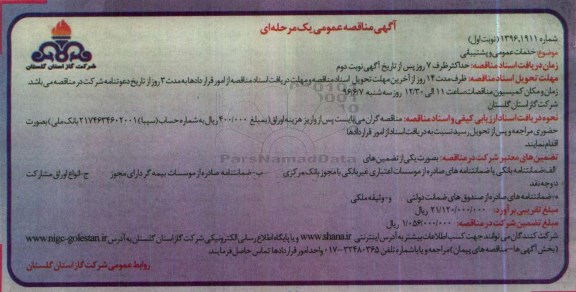 آگهی مناقصه عمومی یک مرحله‌ای
شرکت گاز استان گلستان
شماره ۱۳۹۶،۱۹۱۱ (نوبت اول)
موضوع خدمات عمومی و پشتیبانی
زمان دریافت اسناد مناقصه: حداکثر ظرف ۷ روز پس از تاریخ آگهی نوبت دوم
مهلت تحویل اسناد مناقصه: ظرف مدت ۱۴ روز از آخرین مهلت تحویل اسناد مناقصه و مهلت دریافت اسناد مناقصه از امور قراردادها به مدت ۳ روز از تاریخ دعوتنامه شرکت در مناقصه می باشد
زمان و مکان کمیسیون مناقصات ساعت ۱۱ الی ۱۲/۳۰ روز سه شنبه ۹۶/۶/۷
شرکت گاز استان گلستان
نحوه دریافت اسناد ارزیابی کیفی و اسناد مناقصه: مناقصه گران می بایست پس از واریز هزینه اوراق (بمبلغ ۴۰۰/۰۰۰ ریال به شماره حساب (سیبا) ۲۱۷۴۶۳۴۶۰۲۰۰۱ بانک ملی) بصورت
حضوری مراجعه و پس از تحویل رسید نسبت به دریافت اسناد از امور قراردادها
اقدام نمایند
تضمین های معتبر شرکت در مناقصه: بصورت یکی از تضمین های
الف: ضمانتنامه بانکی یا ضمانتنامه های صادره از موسسات اعتباری غیربانکی با مجوز بانک مرکزی ب- ضمانتنامه صادره از موسسات بیمه گر دارای مجوز ج- انواع اوراق مشارکت
د- وجه نقد
ه- ضمانتنامه های صادره از صندوق های ضمانت دولتی و- وثیقه ملکی
مبلغ تقریبی برآورد: ۲۱/۱۲۰/۰۰۰/۰۰۰ ریال
مبلغ تضمین شرکت در مناقصه: ۱/۰۵۶/۰۰۰/۰۰۰ ریال
شرکت کنندگان می توانند جهت کسب اطلاعات بیشتر به آدرس اینترنتی www.shana.ir و یا پایگاه اطلاع رسانی الکترونیکی شرکت گاز استان گلستان به آدرس www.nigc-golestan.ir
(بخش آگهی ها-مناقصه های پیمان) مراجعه و یا با شماره تلفن ۳۳۴۸۰۳۶۵-۰۱۷ واحد امور قراردادها تماس حاصل فرمایند
روابط عمومی شرکت گاز استان گلستان
ParsNamadData